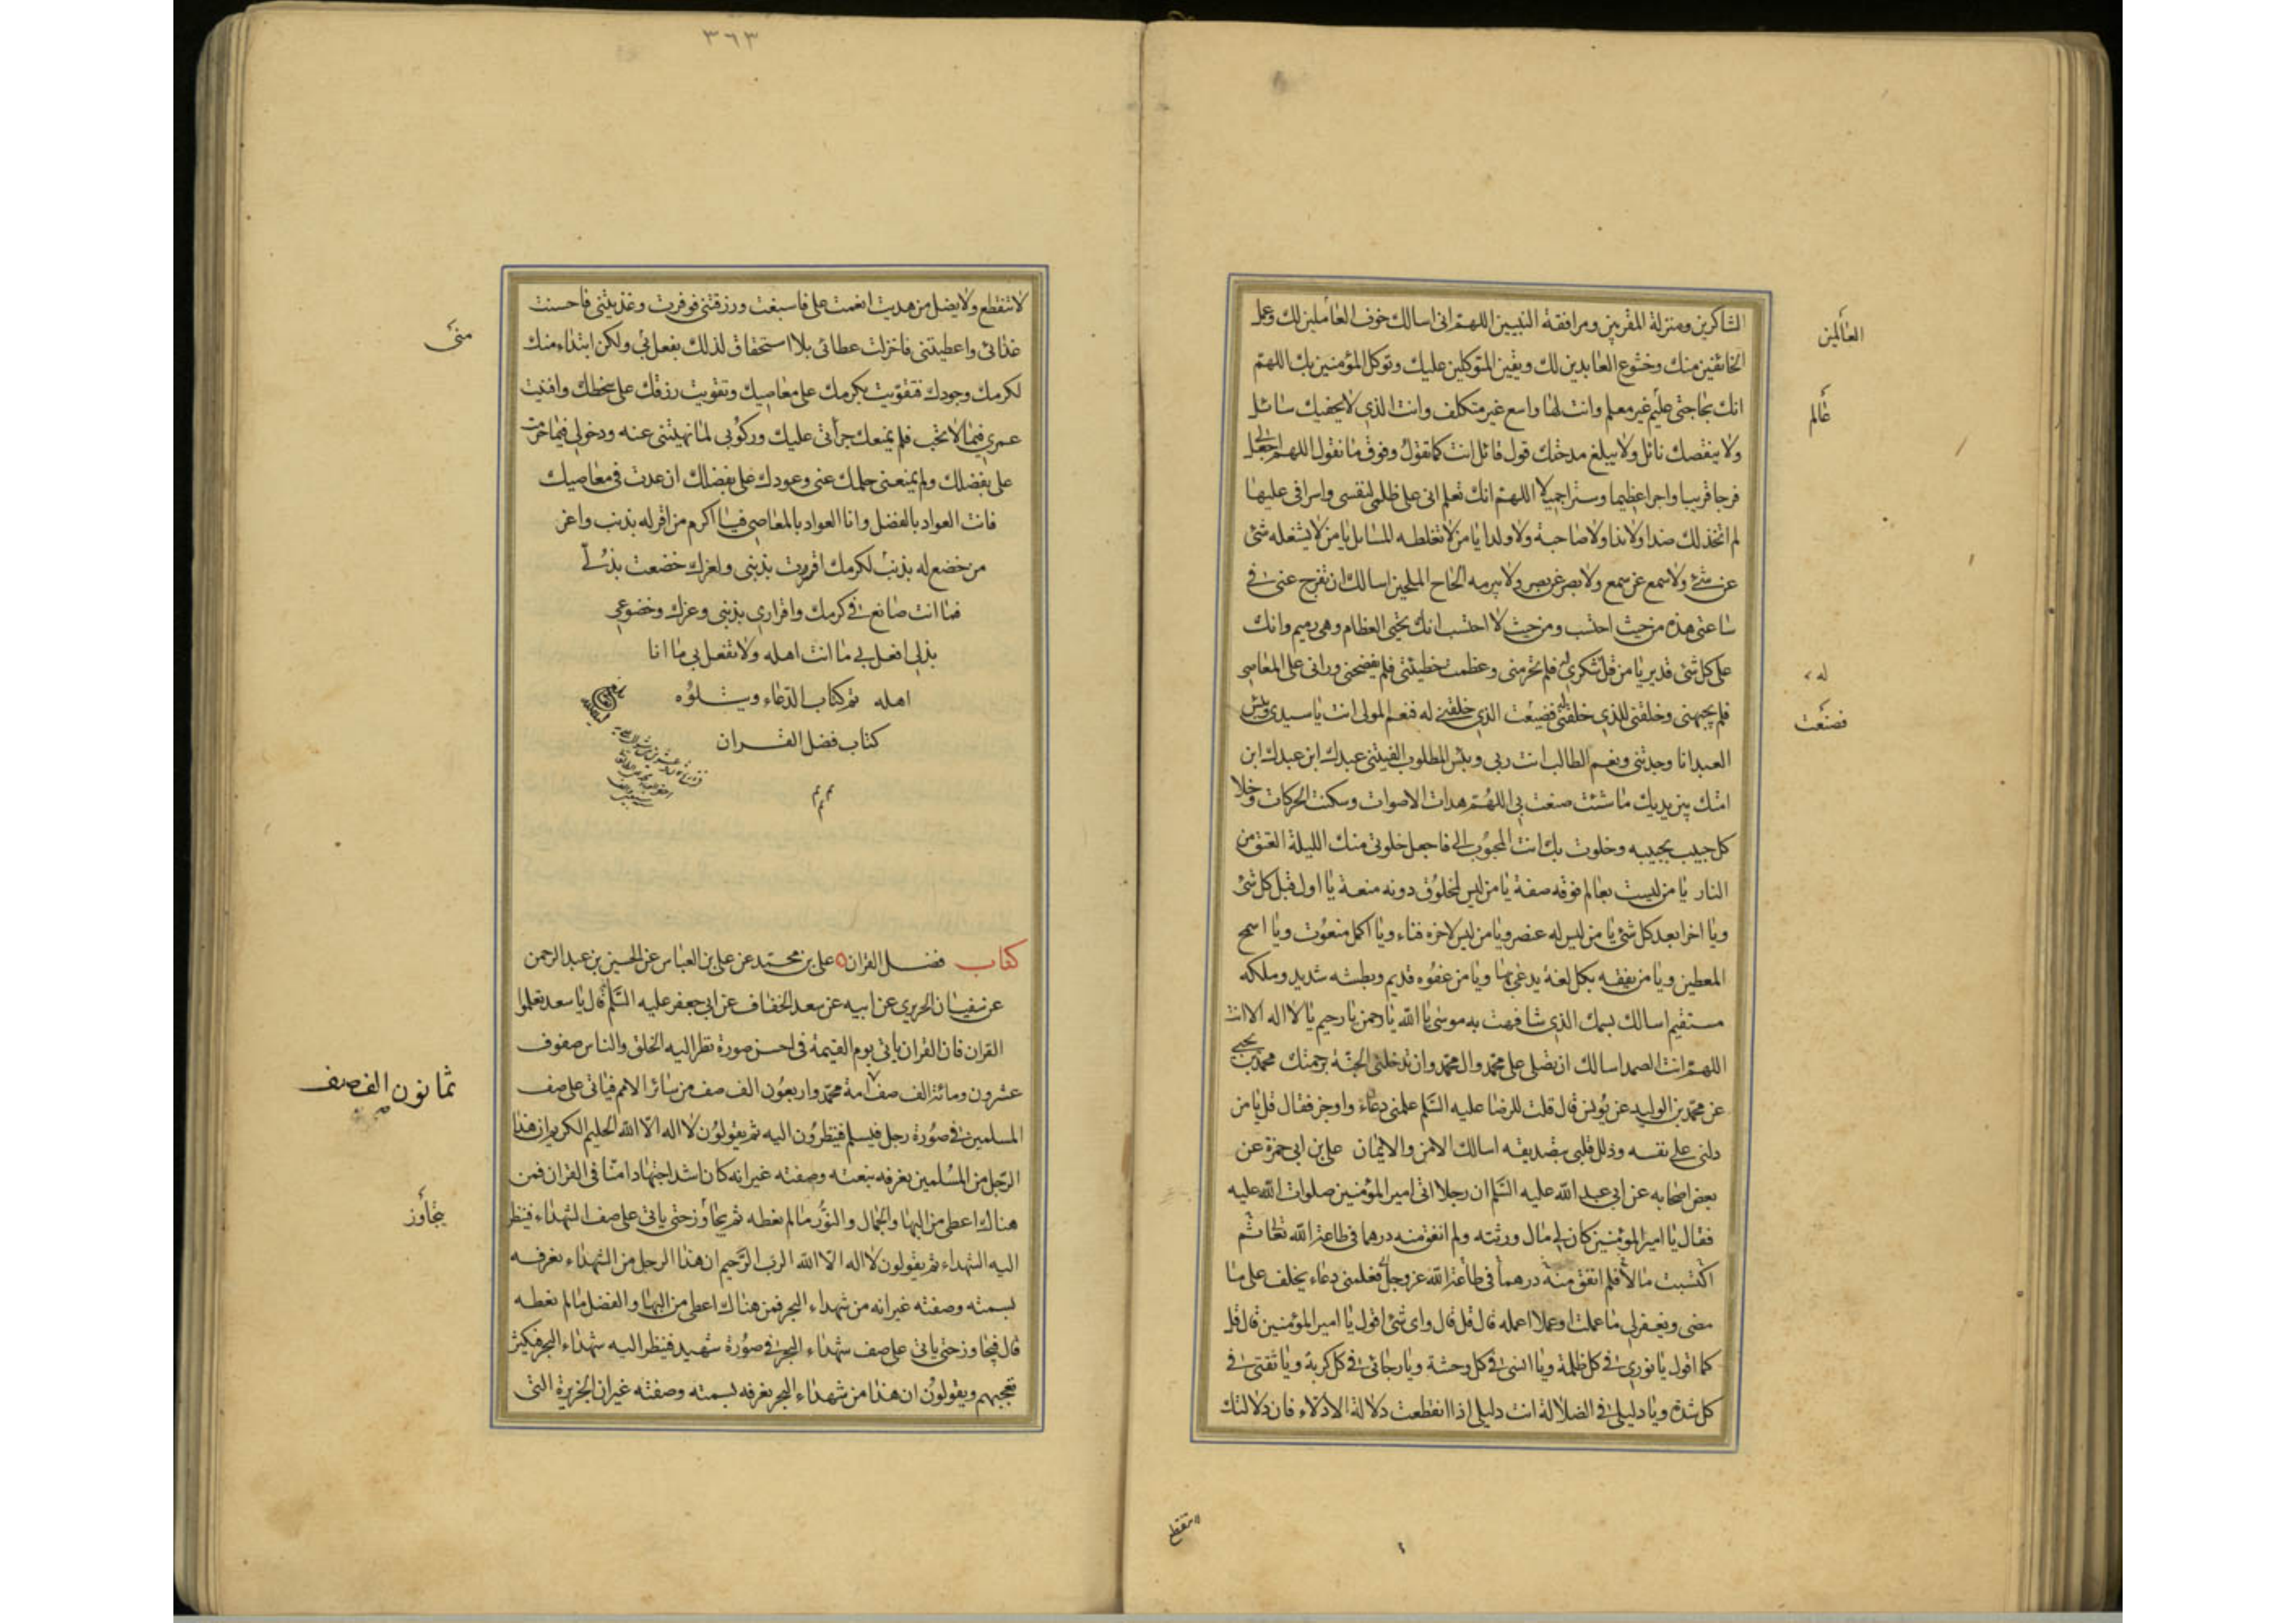 الشاكرين ومنزلة المقربين ومرافقة النبيين اللهم انى اسالك خوف العاملين لك وعمل
العالمين
الخائفين منك وخشوع العابدين لك ويقين المتوكلين عليك وتوكل المؤمنين بك اللهم
انك بحاجتى عليم غير معلم وانت لها واسع غير متكلف وانت الذى لا يحفيك سائل
عالم
ولا ينقصك نائل ولا يبلغ مدحتك قول قائل انت كما تقول وفوق ما نقول اللهم اجعل لى
فرجا قريبا واجرا عظيما وسترا جميلا اللهم انك تعلم انى على ظلمى لنفسى واسرافى عليها
لم اتخذ لك ضدا ولا ندا ولا صاحبة ولا ولدا يا من لا تغلطه المسائل يا من لا يشغله شئ
عن شئ ولا سمع عن سمع ولا بصر عن بصر ولا يبرمه الحاح الملحين اسالك ان تفرج عنى فى
ساعتى هذه من حيث احتسب ومن حيث لا احتسب انك تحيى العظام وهى رميم وانك
على كل شئ قدير يا من قل شكرى له فلم يحرمنى وعظمت خطيئتى فلم يفضحنى ورانى على المعاصى
له
فلم يجبهنى وخلقنى للذى خلقنى له فضيعت الذى خلقنى له فنعم المولى انت يا سيدى وبئس
فصنعت
العبد انا وجدتنى ونعم الطالب انت ربى وبئس المطلوب الفيتنى عبدك ابن عبدك ابن
امتك بين يديك ما شئت صنعت بى اللهم هدات الاصوات وسكنت الحركات وخلا
كل حبيب بحبيبه وخلوت بك انت المحبوب الى فاجعل خلوتى منك الليلة العتق من
النار يا من ليست بعالم فوقه صفة يا من ليس لمخلوق دونه منعة يا اول قبل كل شئ
ويا اخرا بعد كل شئ يا من ليس له عنصر ويا من ليس لاخره فناء ويا اكمل منعوت ويا اسمح
المعطين ويا من يفقه بكل لغة يدعى بها ويا من عفوه قديم وبطشه شديد وملكه
مستقيم اسالك باسمك الذى شافهت به موسى يا الله يا رحمن يا رحيم يا لا اله الا انت
اللهم انت الصمد اسالك ان تصلى على محمد وال محمد وان تدخلنى الجنة برحمتك محمد بن يحيى
عن محمد بن الوليد عن يونس قال قلت للرضا عليه السلم علمنى دعاء واوجز فقال قل يا من
دلنى على نفسه وذلل قلبى بتصديقه اسالك الامن والايمان على بن ابى حمزة عن
بعض اصحابه عن ابى عبد الله عليه السلم ان رجلا اتى امير المؤمنين صلوات الله عليه
فقال يا امير المؤمنين كان لى مال ورثته ولم انفق منه درهما فى طاعة الله تعا ثم
اكتسبت مالا فلم انفق منه درهما فى طاعة الله عز وجل فعلمنى دعاء يخلف على ما
مضى ويغفر لى ما عملت او عملا اعمله قال قل قال واى شئ اقول يا امير المؤمنين قال قل
كما اقول يا نورى فى كل ظلمة ويا انسى فى كل وحشة ويا رجائى فى كل كربة ويا ثقتى فى
كل شدة ويا دليلى فى الضلالة انت دليلى اذا انقطعت دلالة الادلاء فان دلالتك
لا تنقطع
٣٦٣
لا تنقطع ولا يضل من هديت انعمت على فاسبغت ورزقتنى فوفرت وغذيتنى فاحسنت
غذائى واعطيتنى فاجزلت عطائى بلا استحقاق لذلك بفعل بى ولكن ابتداء منك
منى
لكرمك وجودك فتقويت بكرمك على معاصيك وتقويت برزقك على سخطك وافنيت
عمرى فيما لا تحب فلم يمنعك جراتى عليك وركوبى لما نهيتنى عنه ودخولى فيما حرمت
على بفضلك ولم يمنعنى حلمك عنى وعودك على بفضلك ان عدت فى معاصيك
فانت العواد بالفضل وانا العواد بالمعاصى فيا اكرم من اقر له بذنب واعز
من خضع له بذنب لكرمك اقررت بذنبى ولعزك خضعت بذلى
فما انت صانع فى كرمك واقرارى بذنبى وعزك وخضوعى
بذلى افعل بى ما انت اهله ولا تفعل بى ما انا
اهله تم كتاب الدعاء ويتلوه
كتاب فضل القران
كتاب فضل القران على بن محمد عن على بن العباس عن الحسين بن عبد الرحمن
عن سفيان الحريرى عن ابيه عن سعد الخفاف عن ابى جعفر عليه السلم قال يا سعد تعلموا
القران فان القران ياتى يوم القيمة فى احسن صورة نظر اليه الخلق والناس صفوف
عشرون ومائة الف صف امة محمد واربعون الف صف من سائر الامم فياتى على صف
ثمانون الف صف
المسلمين فى صورة رجل فيسلم فينظرون اليه ثم يقولون لا اله الا الله الحليم الكريم ان هذا
الرجل من المسلمين نعرفه بنعته وصفته غير انه كان اشد اجتهادا منا فى القران فمن
هناك اعطى من البها والجمال والنور ما لم نعطه ثم يجاوز حتى ياتى على صف الشهداء فينظر
يتجاوز
اليه الشهداء ثم يقولون لا اله الا الله الرب الرحيم ان هذا الرجل من الشهداء نعرفه
بسمته وصفته غير انه من شهداء البحر فمن هناك اعطى من البها والفضل ما لم نعطه
قال فيجاوز حتى ياتى على صف شهداء البحر فى صورة شهيد فينظر اليه شهداء البحر فيكثر
تعجبهم ويقولون ان هذا من شهداء البحر نعرفه بسمته وصفته غير ان الجزيرة التى